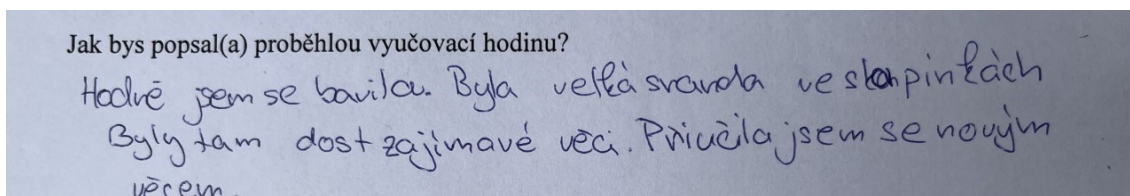 Jak bys popsal(a) proběhlou vyučovací hodinu?
Hodně jsem se bavila. Byla velká sranda ve skupinkách
Byly tam dost zajímavé věci. Přiučila jsem se novým
věcem.